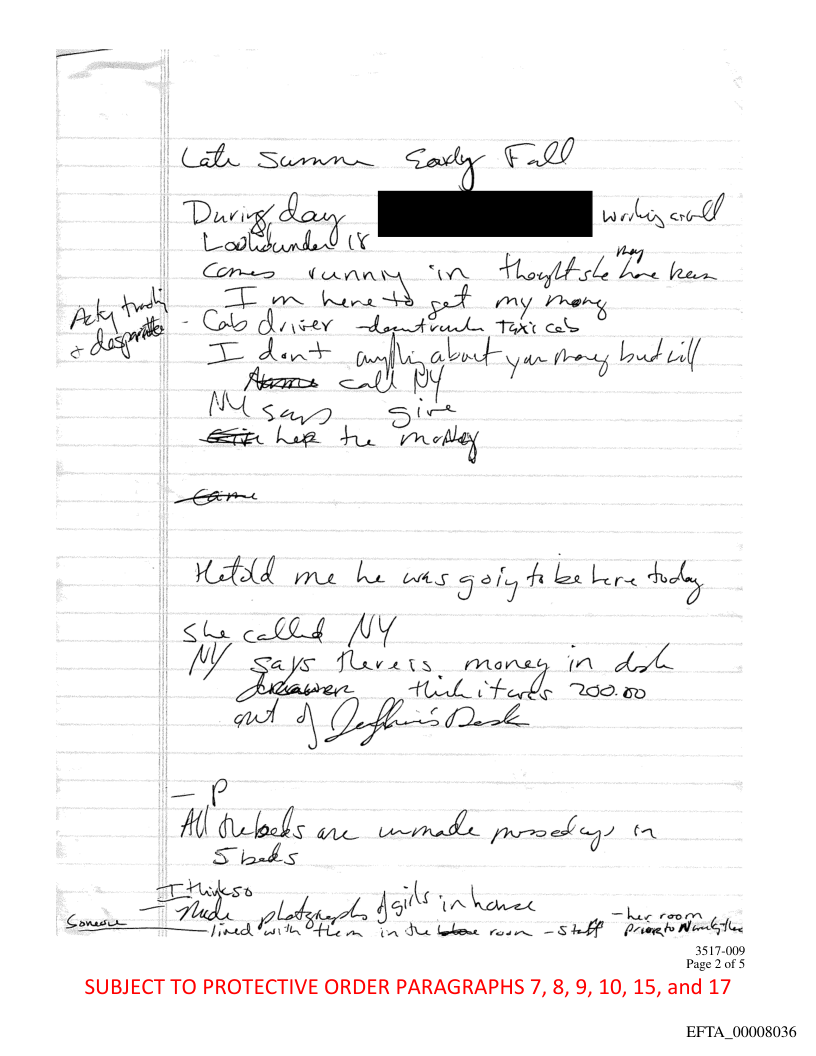 Late Summe Early Fall
During day working around
Looked under 18
may
Comes runny in thought she have been
I m here to get my mony
Acty
+ desparate
- Cab driver Taxi cab
I don't about your money but will
call NY
NY says give
her the money
Came
He told me he was goiy to be here today
She called NY
NY says there is money in dsk
think it was 200.00
out of Desk
- P
All the beds are unmade in
5 beds
I think so
- Nude photographs of girls in house
Someone
- lined with them in the room - staff
- her room
prior to
3517-009
Page 2 of 5
SUBJECT TO PROTECTIVE ORDER PARAGRAPHS 7, 8, 9, 10, 15, and 17
EFTA_00008036